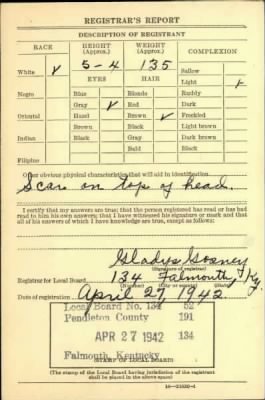 REGISTRAR'S REPORT
DESCRIPTION OF REGISTRANT
RACE HEIGHT (Approx.) WEIGHT (Approx.) COMPLEXION
White ✓ 5-4 135 Sallow
EYES HAIR Light ✓
Negro Blue Blonde Ruddy
Gray ✓ Red Dark
Oriental Hazel Brown ✓ Freckled
Brown Black Light brown
Indian Black Gray Dark brown
Bald Black
Filipino
Other obvious physical characteristics that will aid in identification
Scar on top of head.
I certify that my answers are true; that the person registered has read or has had
read to him his own answers; that I have witnessed his signature or mark and that
all of his answers of which I have knowledge are true, except as follows:
Gladys Gosney
(Signature of registrar)
Registrar for Local Board 134 Falmouth, Ky.
(Number) (City or county) (State)
Date of registration April 27, 1942
Local Board No. 134 52
Pendleton County 191
APR 27 1942 134
Falmouth, Kentucky
(STAMP OF LOCAL BOARD)
(The stamp of the Local Board having jurisdiction of the registrant
shall be placed in the above space)